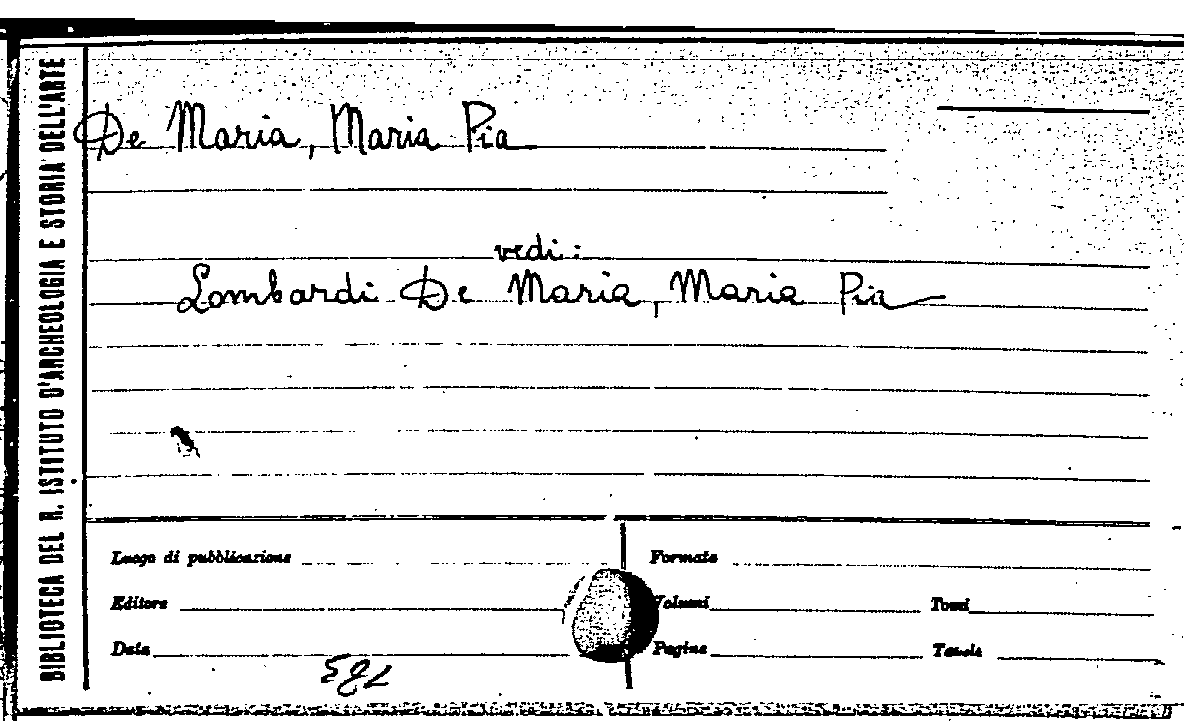 BIBLIOTECA DEL R. ISTITUTO D'ARCHEOLOGIA E STORIA DELL'ARTE
De Maria, Maria Pia
vedi:
Lombardi De Maria, Maria Pia
Luogo di pubblicazione
Formato
Editore
Volumi
Tomi
Data
Pagine
Tavole